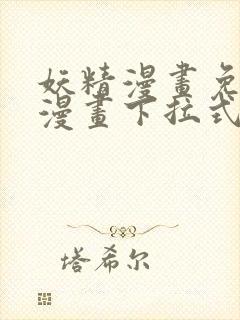 妖精漫畫免
漫畫下拉式
塔希尔